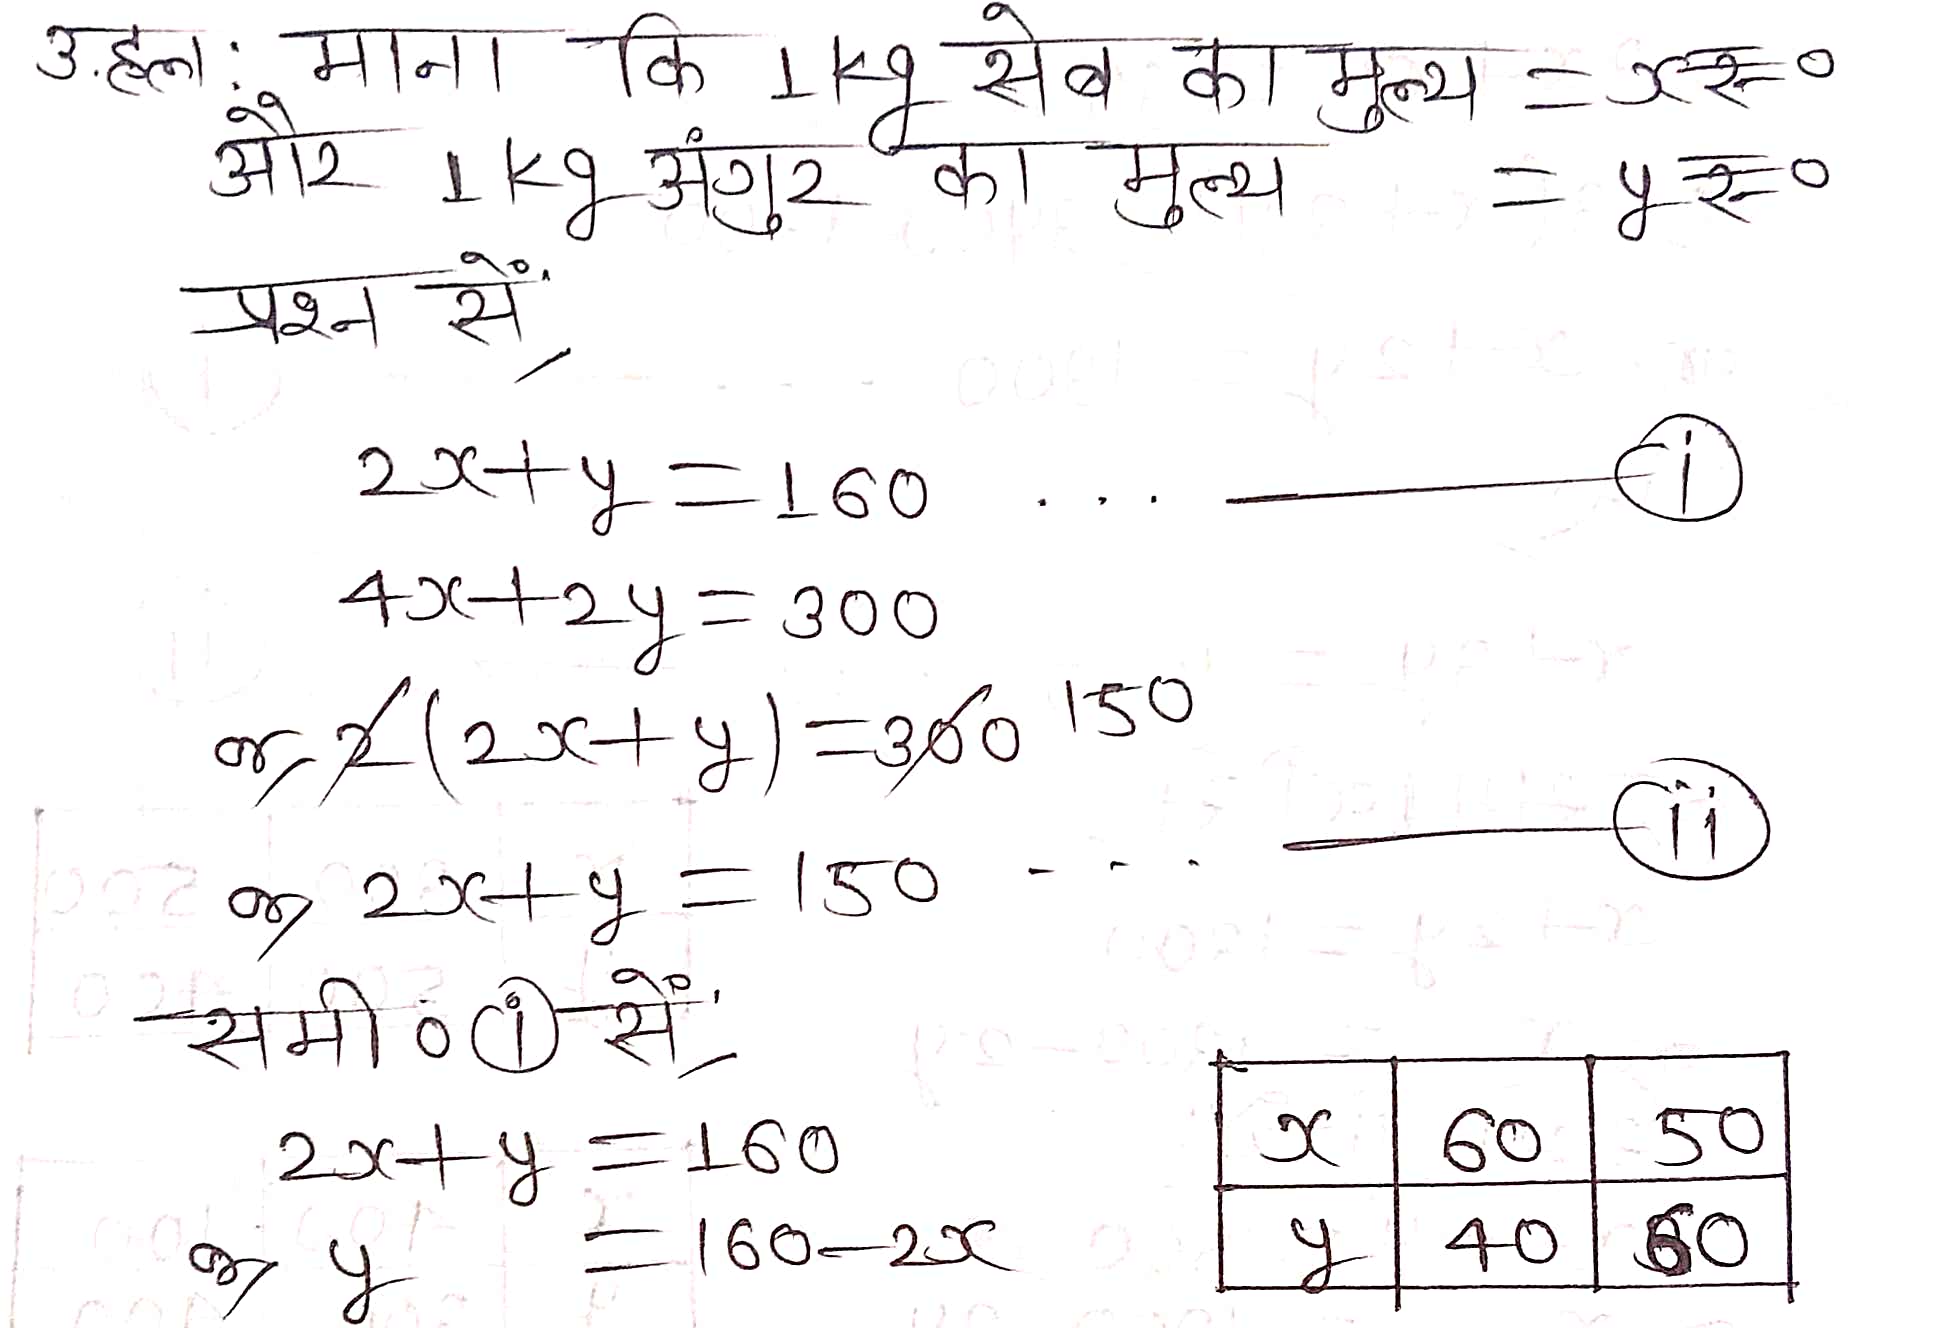 3.हल: माना कि 1kg सेब का मुल्य = x रू०
और 1kg अंगुर का मुल्य = y रू०
प्रश्न सें,
2x+y = 160 ... ——— (i)
4x+2y = 300
or, 2(2x+y) = 300 150
or, 2x+y = 150 - - - ——— (ii)
समी० (i) सें,
2x+y = 160
or, y = 160-2x
x 60 50
y 40 60